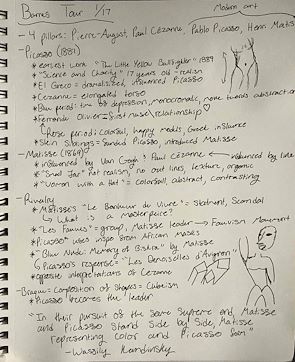 Barnes Tour 1/17
Modern art
- 4 pillars: Pierre-August, Paul Cézanne, Pablo Picasso, Henri Matisse
- Picasso (1881)
* earliest work "The Little Yellow Bullfighter" 1889
* "Science and Charity" 17 years old - realism
* El Greco = dramatized, influenced Picasso
* Cezanne = elongated torso
* Blue period: time of depression, monocromatic, more towards abstraction
* Fernande Olivier = first muse, relationship
↳ Rose period: colorful, happy models, Greek influence
* Stein Siblings = funded Picasso, introduced Matisse
- Matisse (1869)
* influenced by Van Gogh & Paul Cézanne ← influenced by line
* "Snail Jar" not realism, no out lines, texture, organic
* "Woman with a Hat" = colorful, abstract, contrasting
- Rivalry
* Matisse's "Le Bonheur du Vivre": statment, Scandal
↳ What is a masterpiece?
* "Les Fauves" = group, Matisse leader → Fauvism Movement
* Picasso uses inspo from African Masks
* "Blue Nude: Memory of Biskra" by Matisse
↳ Picasso's response = "Les Demoiselles d'Avignon"
* opposite interpretations of Cezanne
- Braque = Composition of Shapes = Cubism
* Picasso becomes the leader
"In their pursuit of the same supreme end, Matisse
and Picasso Stand side by side, Matisse
representing color and Picasso form"
- Wassily Kandinsky